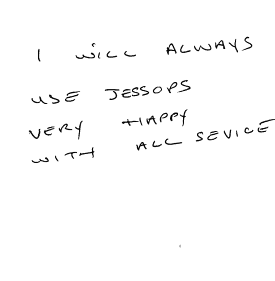 I WILL ALWAYS
USE JESSOPS
VERY HAPPY
WITH ALL SEVICE